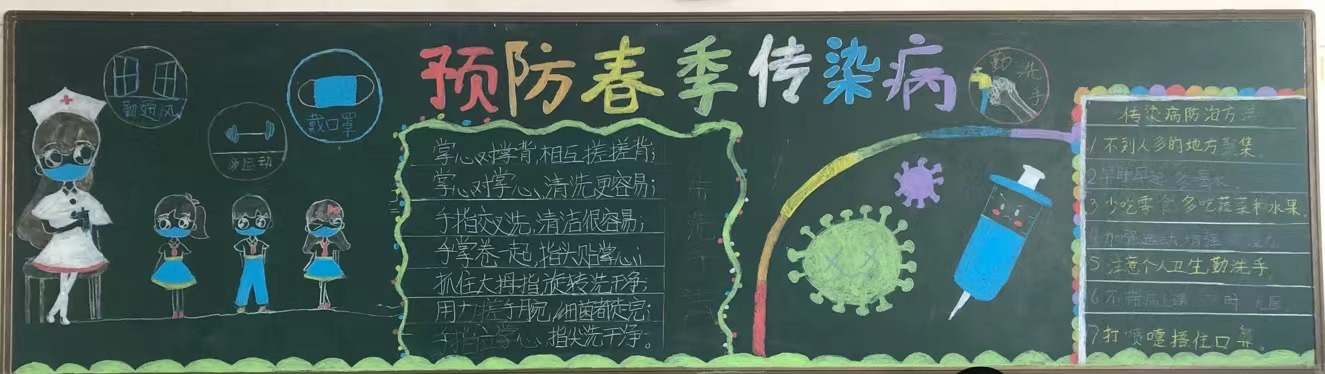 预防春季传染病
勤通风
戴口罩
多运动
勤洗手
掌心对掌背,相互搓搓背;
掌心对掌心、清洗更容易;
手指交叉洗,清洁很容易;
手掌卷一起,指头贴掌心;
抓住大拇指旋转洗干净;
用力搓手腕,细菌都走完;
指尖洗干净。
洗手
传染病防治方法
1 不到人多的地方聚集。
2 早睡早起多喝水
3 少吃零食多吃蔬菜和水果。
4 加强运动增强
5 注意个人卫生勤洗手。
6 不带病上课
7 打喷嚏捂住口鼻。